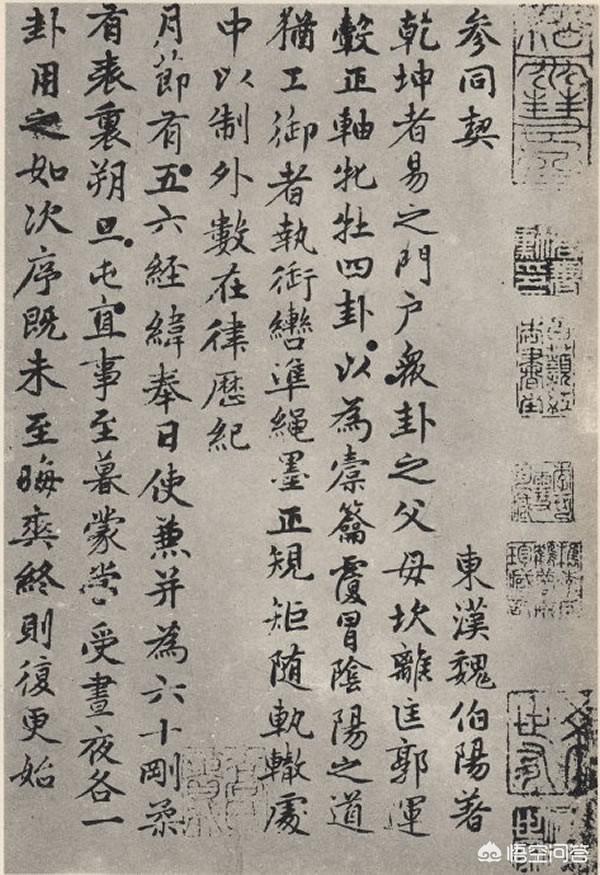 參同契
東漢魏伯陽著
乾坤者易之門户衆卦之父母坎離匡郭運
轂正軸牝牡四卦以為橐籥覆冒陰陽之道
猶工御者執銜轡準繩墨正規矩随軌轍處
中以制外數在律歷紀
月節有五六經緯奉日使兼并為六十剛柔
有表裏朔旦屯直事至暮蒙當受晝夜各一
卦用之如次序既未至晦爽終則復更始
悟空问答